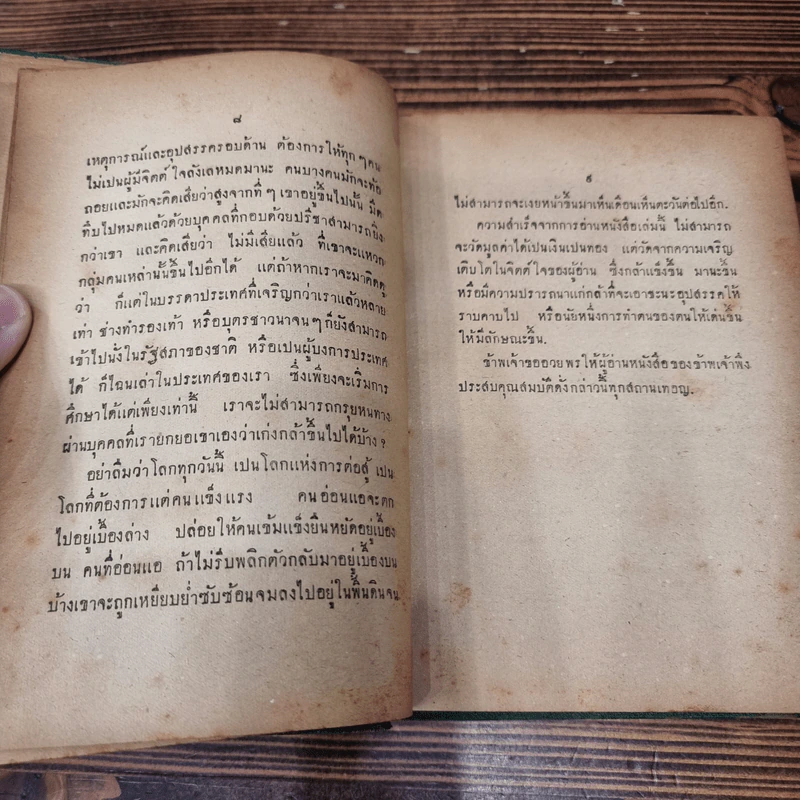 ๘
เหตุการณ์และอุปสรรครอบด้าน ต้องการให้ทุก ๆ คน
ไม่เป็นผู้มีจิตต์ใจลังเลหมดมานะ คนบางคนมักจะท้อ
ถอยและมักจะคิดเสียว่าสูงจากที่ ๆ เขาอยู่ขึ้นไปนั้น มืด
ทึบไปหมดแล้วด้วยบุคคลที่กอบด้วยปรีชาสามารถยิ่ง
กว่าเขา และคิดเสียว่า ไม่มีเสียแล้ว ที่เขาจะแหวก
กลุ่มคนเหล่านั้นขึ้นไปอีกได้ แต่ถ้าหากเราจะมาคิดดู
ว่า ก็แต่ในบรรดาประเทศที่เจริญกว่าเราแล้วหลาย
เท่า ช่างทำรองเท้า หรือบุตรชาวนาจน ๆ ก็ยังสามารถ
เข้าไปนั่งในรัฐสภาของชาติ หรือเป็นผู้บงการประเทศ
ได้ ก็ไฉนเล่าในประเทศของเรา ซึ่งเพียงจะเริ่มการ
ศึกษาได้แต่เพียงเท่านี้ เราจะไม่สามารถกรุยหนทาง
ผ่านบุคคลที่เรายกยอเขาเองว่าเก่งกล้าขึ้นไปได้บ้าง ?
อย่าลืมว่าโลกทุกวันนี้ เป็นโลกแห่งการต่อสู้ เป็น
โลกที่ต้องการแต่คนแข็งแรง คนอ่อนแอจะตก
ไปอยู่เบื้องล่าง ปล่อยให้คนเข้มแข็งยืนหยัดอยู่เบื้อง
บน คนที่อ่อนแอ ถ้าไม่รีบพลิกตัวกลับมาอยู่เบื้องบน
บ้างเขาจะถูกเหยียบย่ำซับซ้อนจมลงไปอยู่ในพื้นดินจน
๙
ไม่สามารถจะเงยหน้าขึ้นมาเห็นเดือนเห็นตะวันต่อไปอีก.
ความสำเร็จจากการอ่านหนังสือเล่มนี้ ไม่สามารถ
จะวัดมูลค่าได้เป็นเงินเป็นทอง แต่วัดจากความเจริญ
เติบโตในจิตต์ใจของผู้อ่าน ซึ่งกล้าแข็งขึ้น มานะขึ้น
หรือมีความปรารถนาแก่กล้าที่จะเอาชนะอุปสรรคให้
ราบคาบไป หรือนัยหนึ่งการทำตนของตนให้เด่นขึ้น
ให้มีลักษณะขึ้น.
ข้าพเจ้าขออวยพรให้ผู้อ่านหนังสือของข้าพเจ้าพึง
ประสบคุณสมบัติดั่งกล่าวนี้ทุกสถานเทอญ.